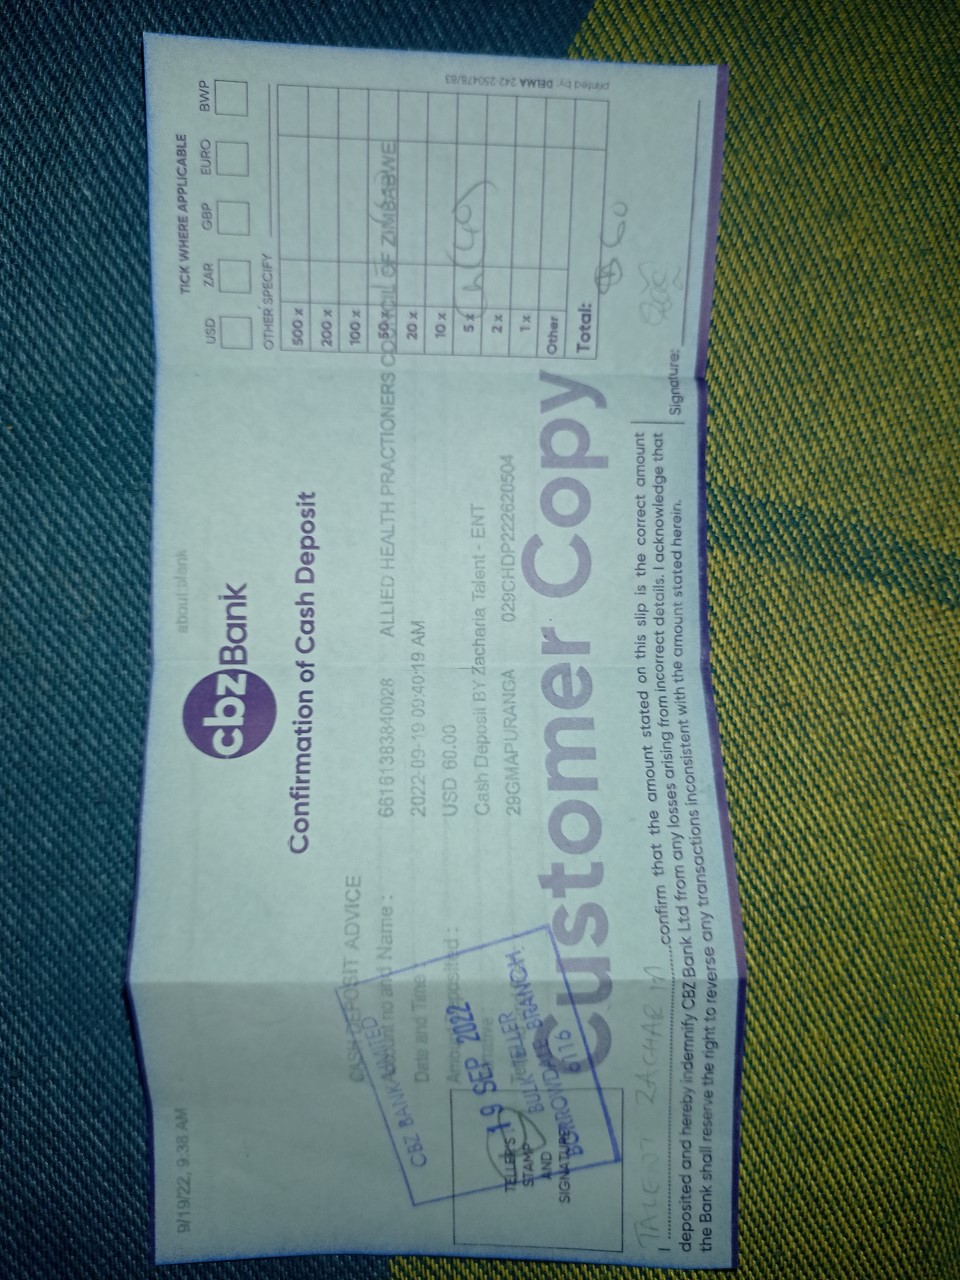 9/19/22, 9:38 AM
about:blank
cbz Bank
Confirmation of Cash Deposit
CASH DEPOSIT ADVICE
Account no and Name : 66161383840028 ALLIED HEALTH PRACTIONERS COUNCIL OF ZIMBABWE
Date and Time : 2022-09-19 09:40:19 AM
Amount Deposited : USD 60.00
Narrative : Cash Deposit BY Zacharia Talent - ENT
29GMAPURANGA 029CHDP222620504
Customer Copy
TELLER'S
STAMP
AND
SIGNATURE
CBZ BANK LIMITED
19 SEP 2022
BULK TELLER
BORROWDALE BRANCH
6116
TICK WHERE APPLICABLE
USD ZAR GBP EURO BWP
OTHER SPECIFY
500 x
200 x
100 x
50 x
20 x
10 x
5 x
2 x
1 x
Other
Total: $ 60
I TALENT ZACHARIA confirm that the amount stated on this slip is the correct amount
deposited and hereby indemnify CBZ Bank Ltd from any losses arising from incorrect details. I acknowledge that
the Bank shall reserve the right to reverse any transactions inconsistent with the amount stated herein.
Signature:
printed by: DELMA 242 250478/83